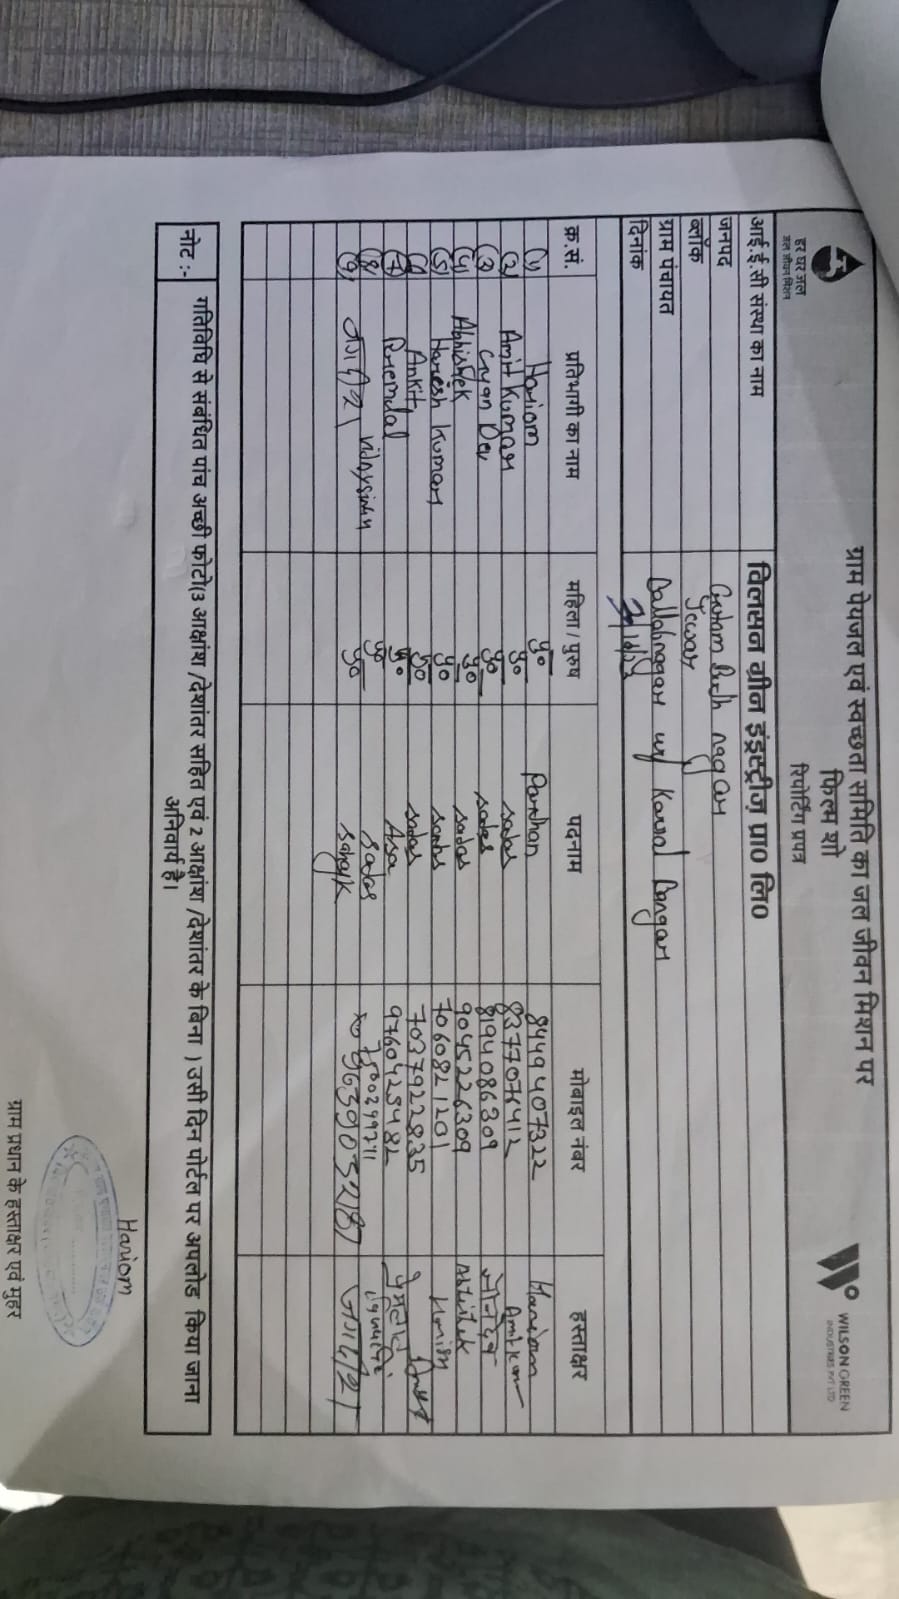 हर घर जल
जल जीवन मिशन
ग्राम पेयजल एवं स्वच्छता समिति का जल जीवन मिशन पर
फिल्म शो
रिपोर्टिंग प्रपत्र
WILSON GREEN
INDUSTRIES PVT LTD
आई.ई.सी संस्था का नाम विलसन ग्रीन इंड्रस्ट्रीज़ प्रा० लि०
जनपद Gautam Budh nagar
ब्लॉक Jewar
ग्राम पंचायत Ballabhnagar urf Karol Bangar
दिनांक
क्र.सं. प्रतिभागी का नाम महिला / पुरुष पदनाम मोबाइल नंबर हस्ताक्षर
(1) Hariom पु० Pardhan 8449407322 Hariom
(2) Amit Kumar पु० sadas 8377078412 Amit Kumar
(3) Gyan Dev पु० sadas 8194086309 ज्ञानदेव
(4) Abhishek पु० sadas 9045226309 Abhishek
(5) Haresh Kumar पु० sadas 7060821201
(6) Ankit पु० sadas 7037922835
(7) Premdal पु० Asa 9760425482
(8) Vidaysinhn पु० sadas 7500299211
(9) जगदीश पु० Sahayk 9639903218 जगदीश
नोट :- गतिविधि से संबंधित पांच अच्छी फोटो(3 आक्षांश /देशांतर सहित एवं 2 आक्षांश /देशांतर के बिना ) उसी दिन पोर्टल पर अपलोड किया जाना
अनिवार्य है।
Hariom
ग्राम प्रधान के हस्ताक्षर एवं मुहर